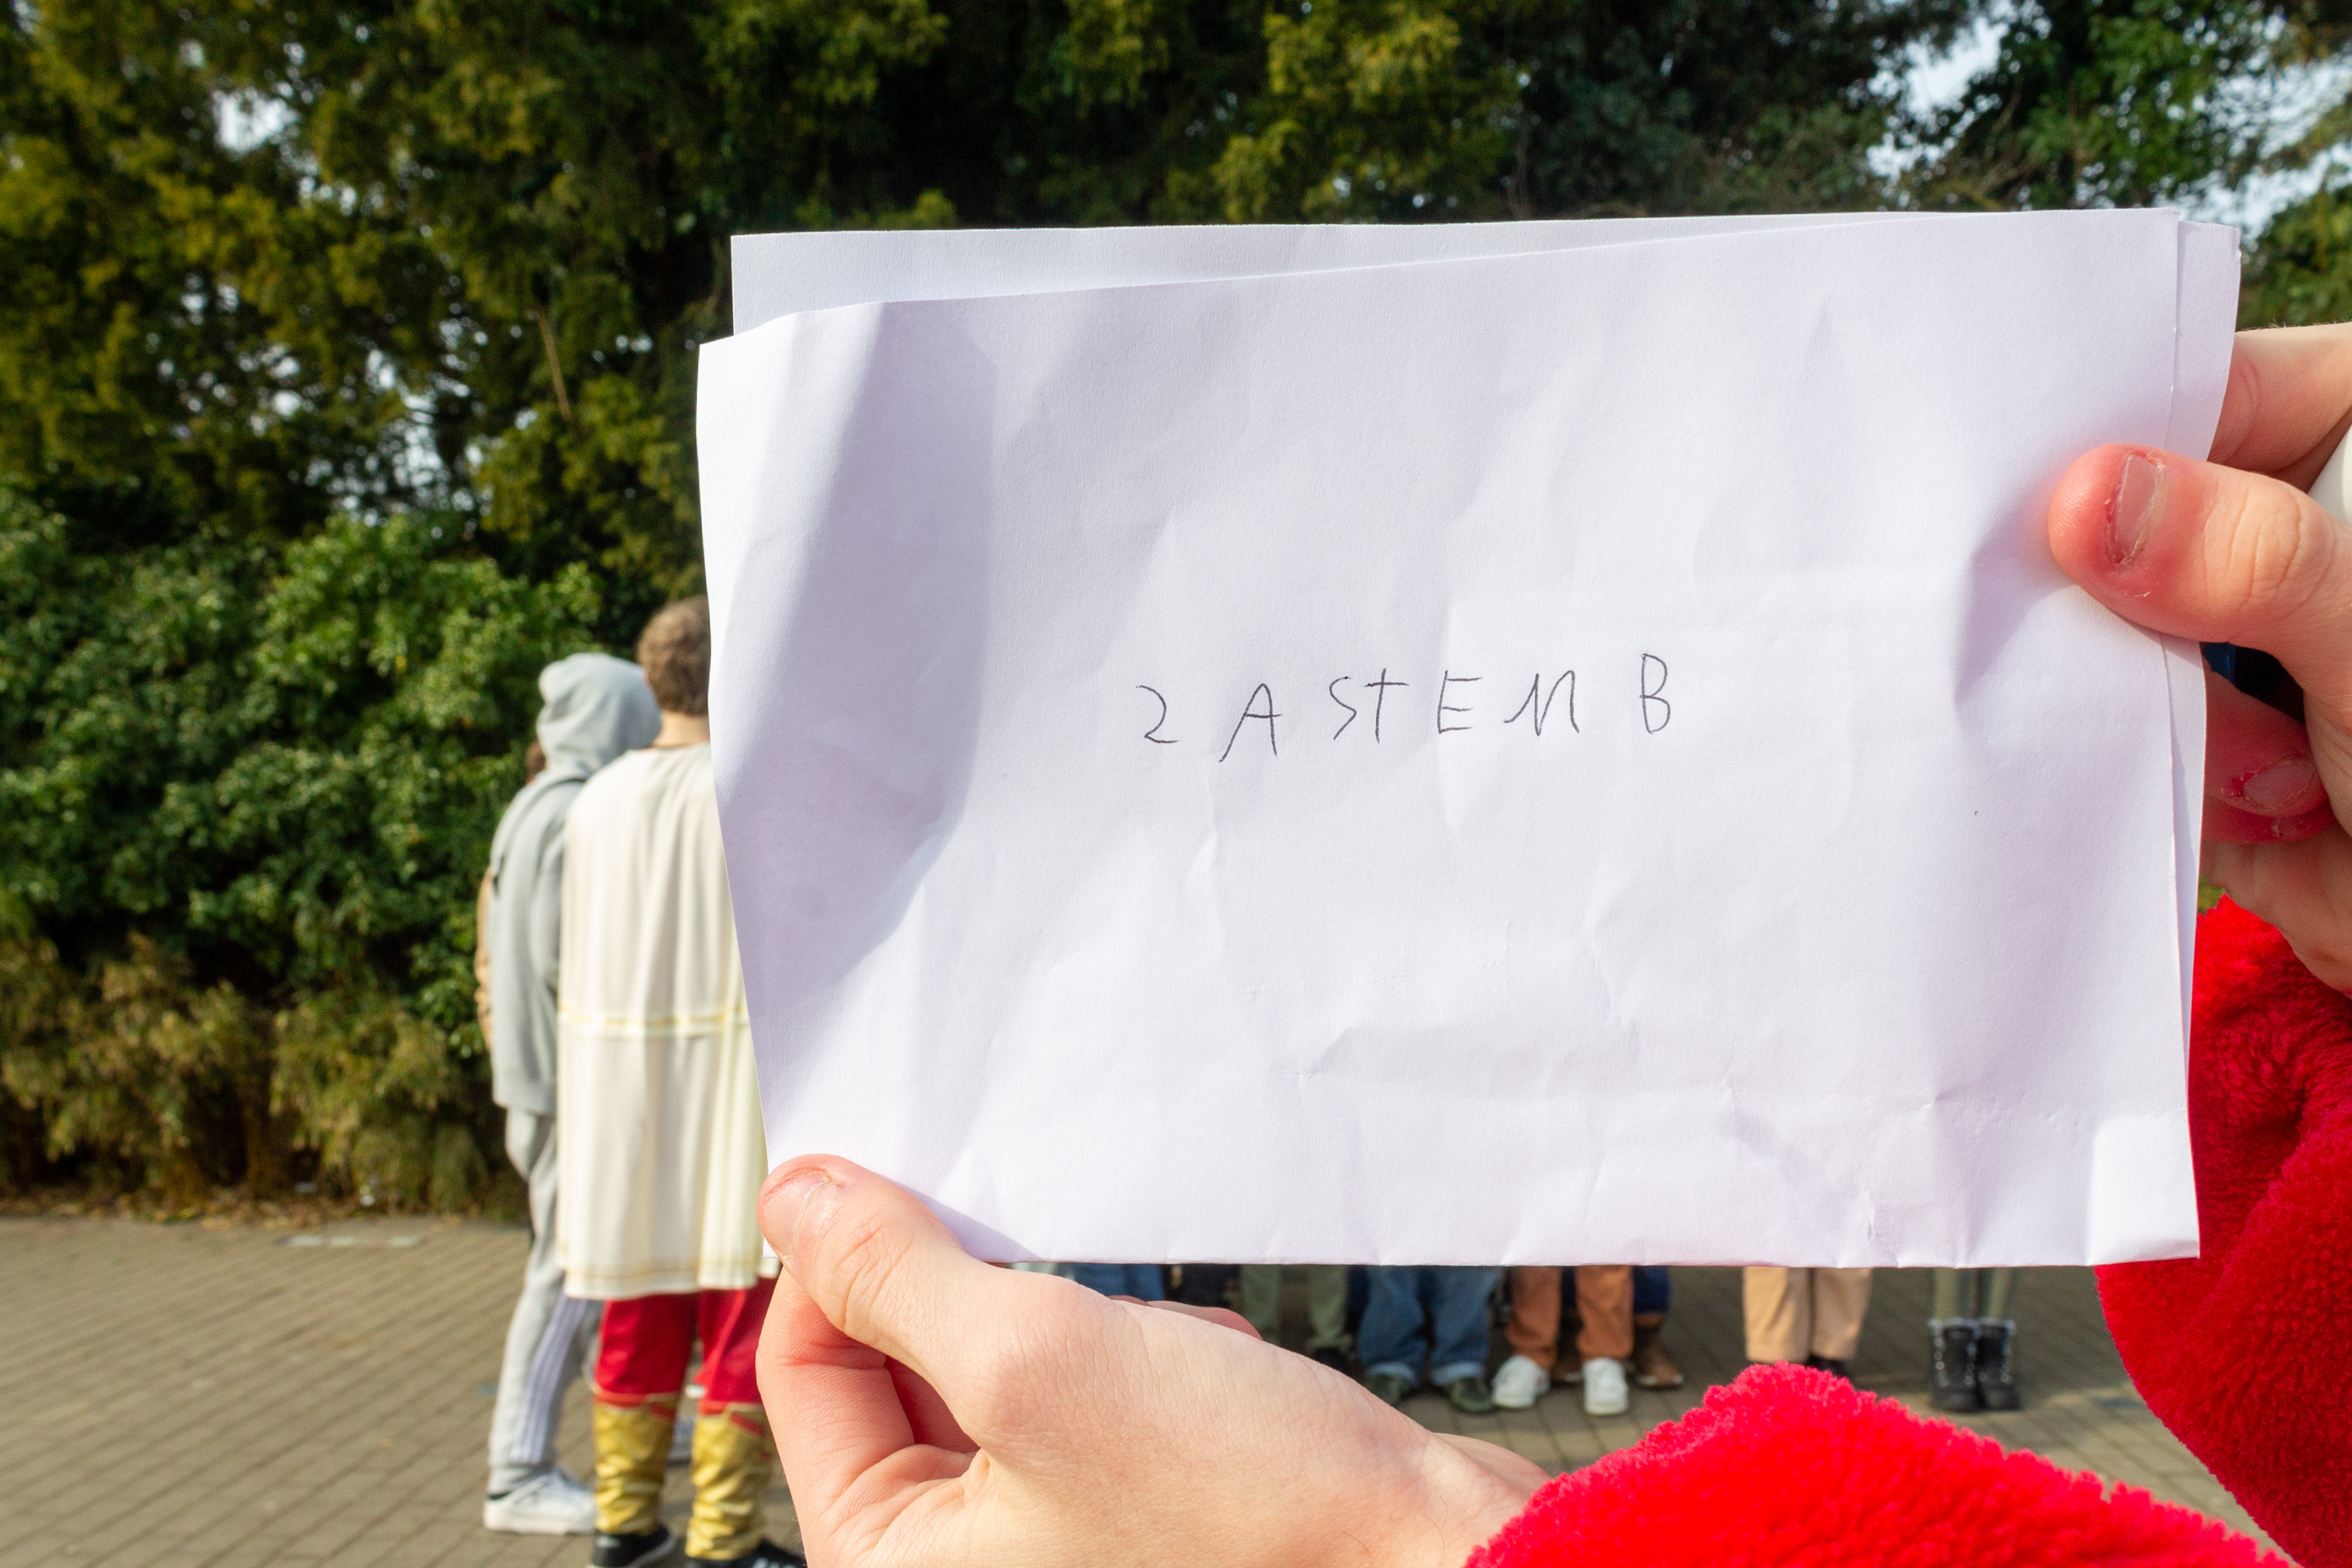 2 A STEM B